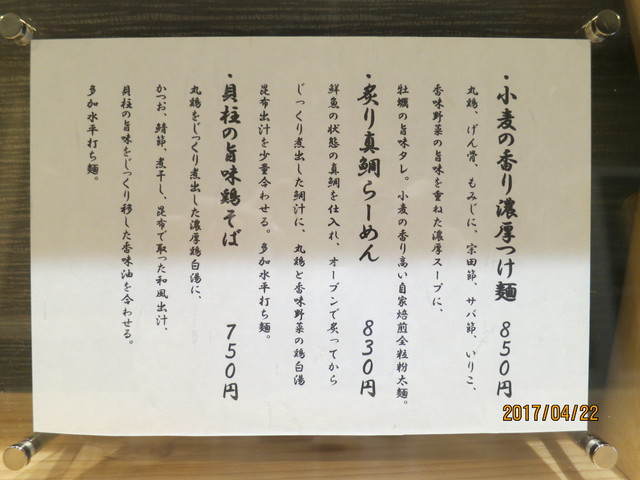 ・小麦の香り濃厚つけ麺　850円
丸鶏、げん骨、もみじに、宗田節、サバ節、いりこ、
香味野菜の旨味を重ねた濃厚スープに、
牡蠣の旨味タレ。小麦の香り高い自家焙煎全粒粉太麺。
・炙り真鯛らーめん　830円
鮮魚の状態の真鯛を仕入れ、オーブンで炙ってから
じっくり煮出した鯛汁に、丸鶏と香味野菜の鶏白湯
昆布出汁を少量合わせる。多加水平打ち麺。
・貝柱の旨味鶏そば　750円
丸鶏をじっくり煮出した濃厚鶏白湯に、
かつお、鯖節、煮干し、昆布で取った和風出汁、
貝柱の旨味をじっくり移した香味油を合わせる。
多加水平打ち麺。
2017/04/22